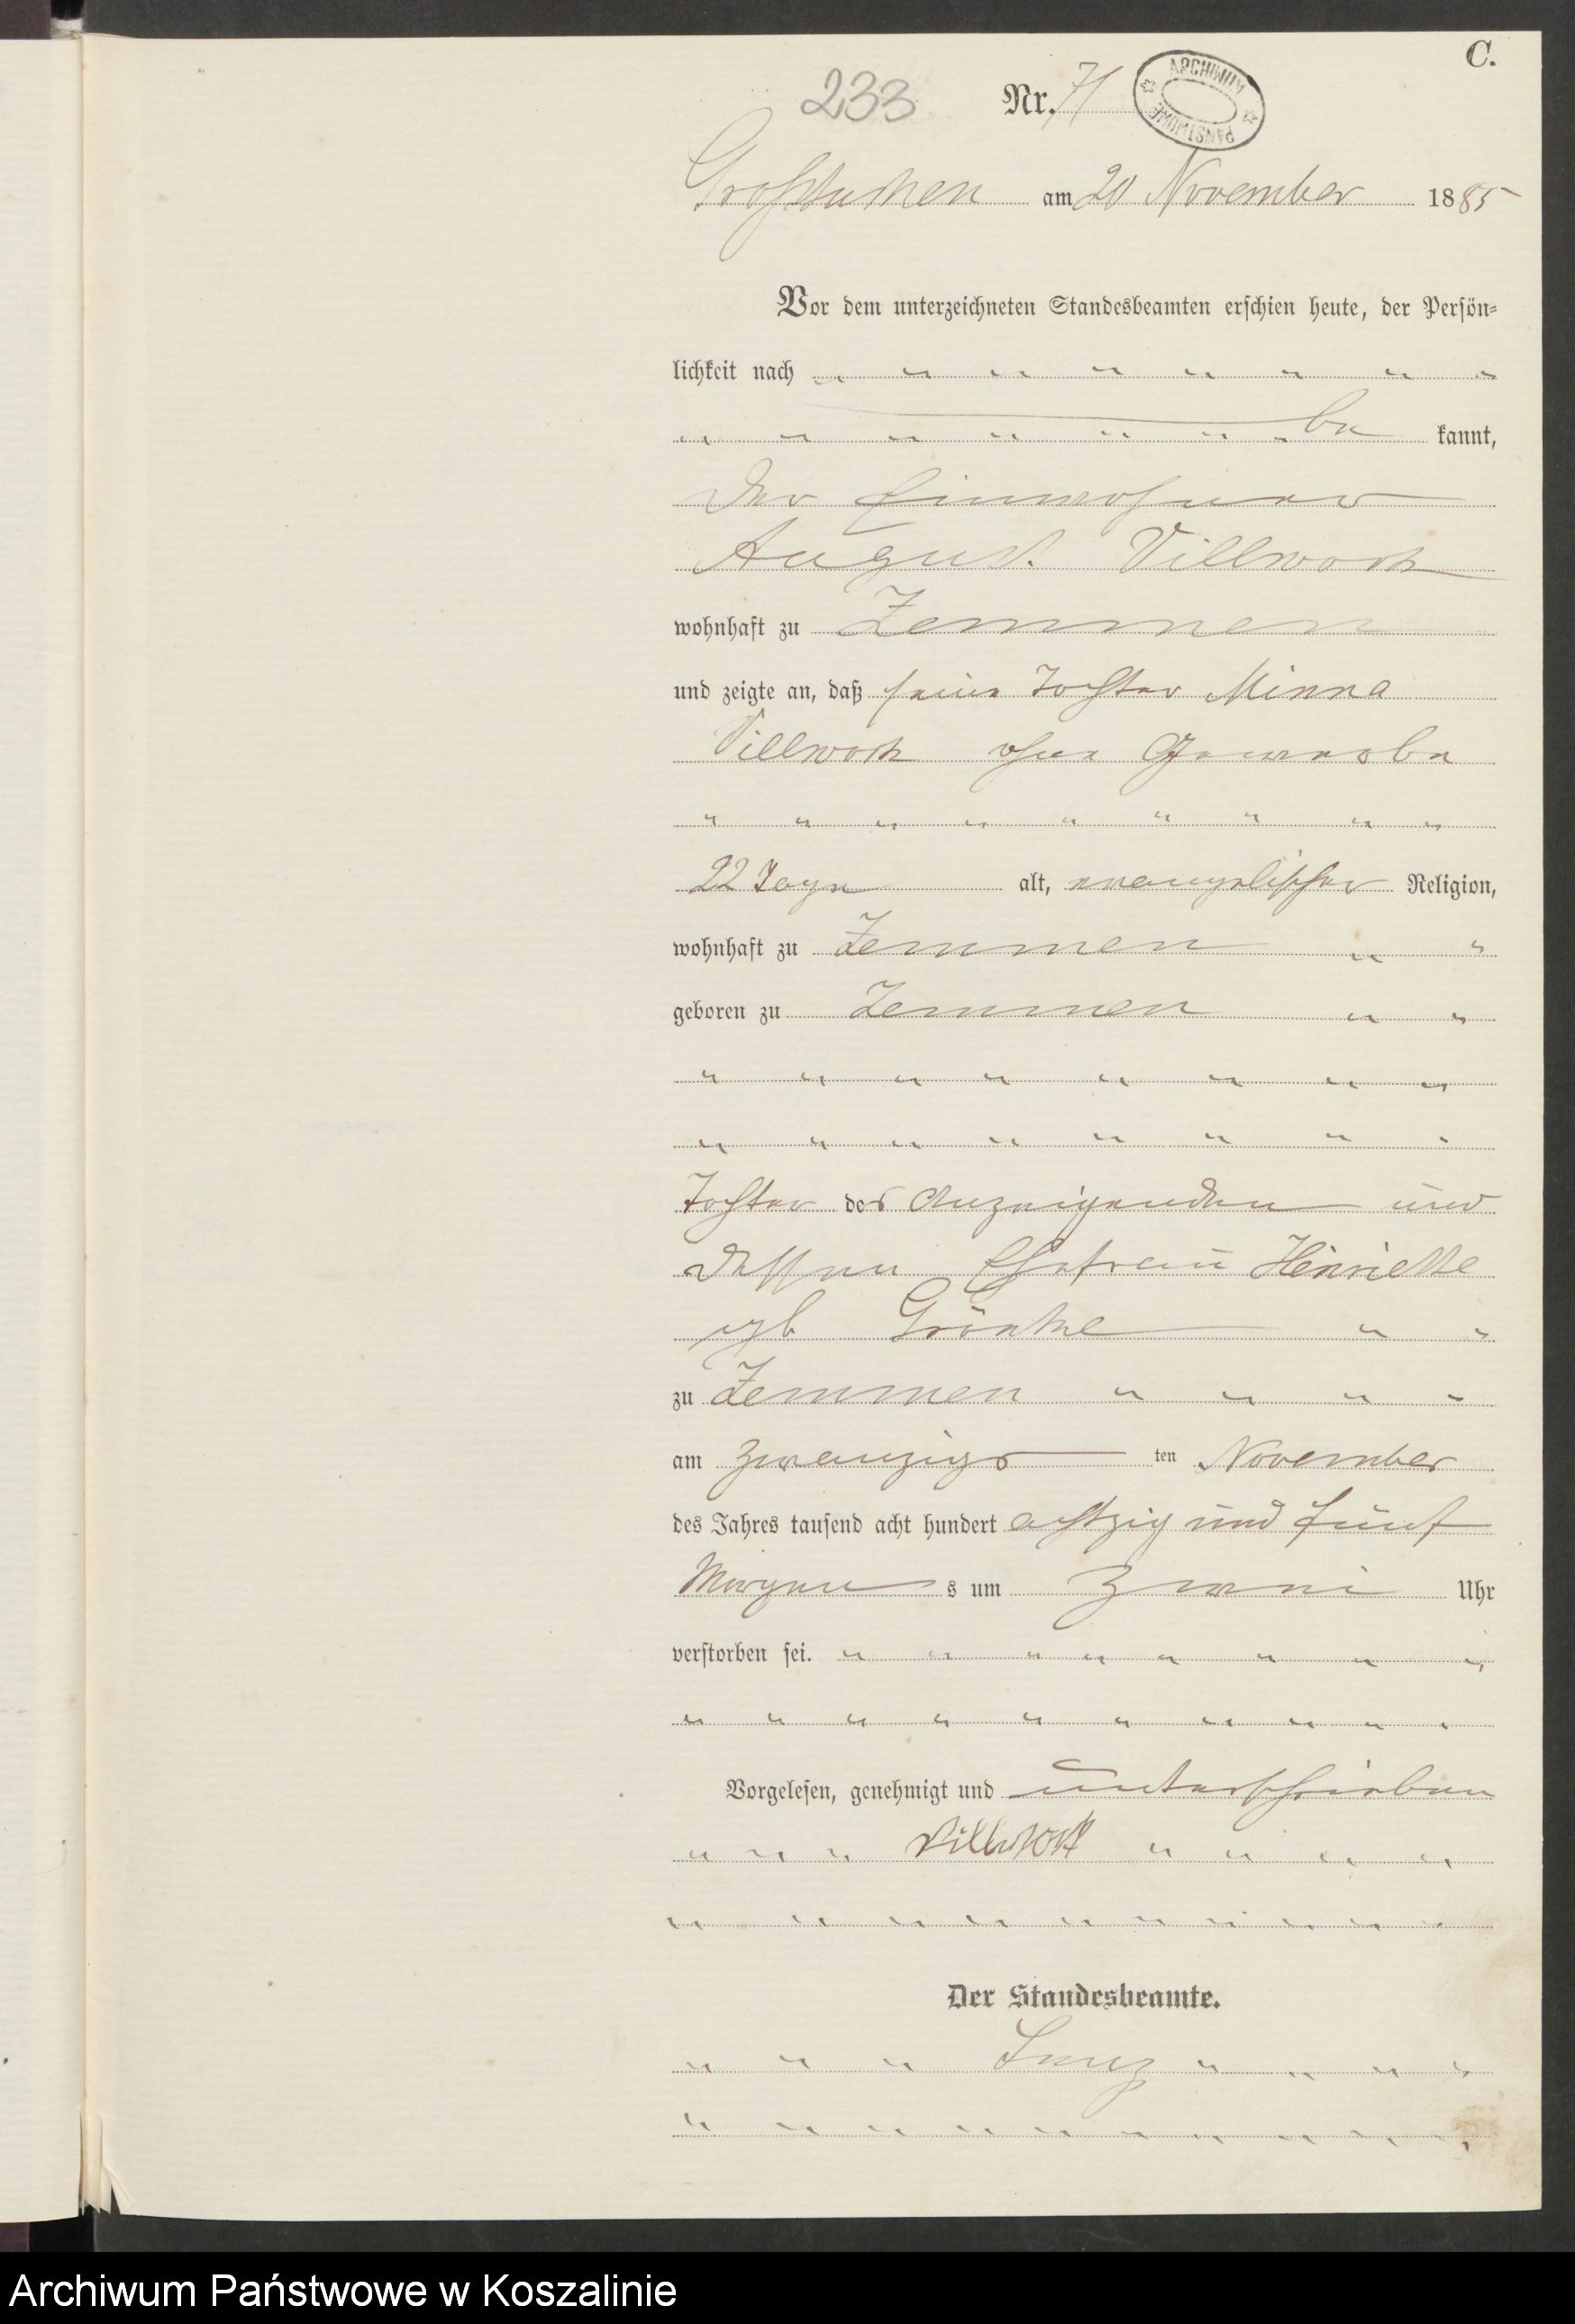 C.
233 Nr. 71
ARCHIWUM PAŃSTWOWE
Großtuchen am 20 November 1885
Vor dem unterzeichneten Standesbeamten erschien heute, der Persön-
lichkeit nach " " " " " " " "
" " " " " " " be kannt,
der Einwohner
August Villwock
wohnhaft zu Zemmen
und zeigte an, daß seine Tochter Minna
Villwock ohne Gewerbe
" " " " " " " " "
22 Tage alt, evangelischer Religion,
wohnhaft zu Zemmen " "
geboren zu Zemmen " "
" " " " " " " "
" " " " " " " "
Tochter des Anzeigenden und
dessen Ehefrau Henriette
geb Grönke " "
zu Zemmen " " " "
am zwanzigs ten November
des Jahres tausend acht hundert achtzig und fünf
Morgen s um zwei Uhr
verstorben sei. " " " " " " " "
" " " " " " " " " "
Vorgelesen, genehmigt und unterschrieben
" " " Villwock " " " "
" " " " " " " " " "
Der Standesbeamte.
" " " " " " "
" " " " " " " " " "
Archiwum Państwowe w Koszalinie